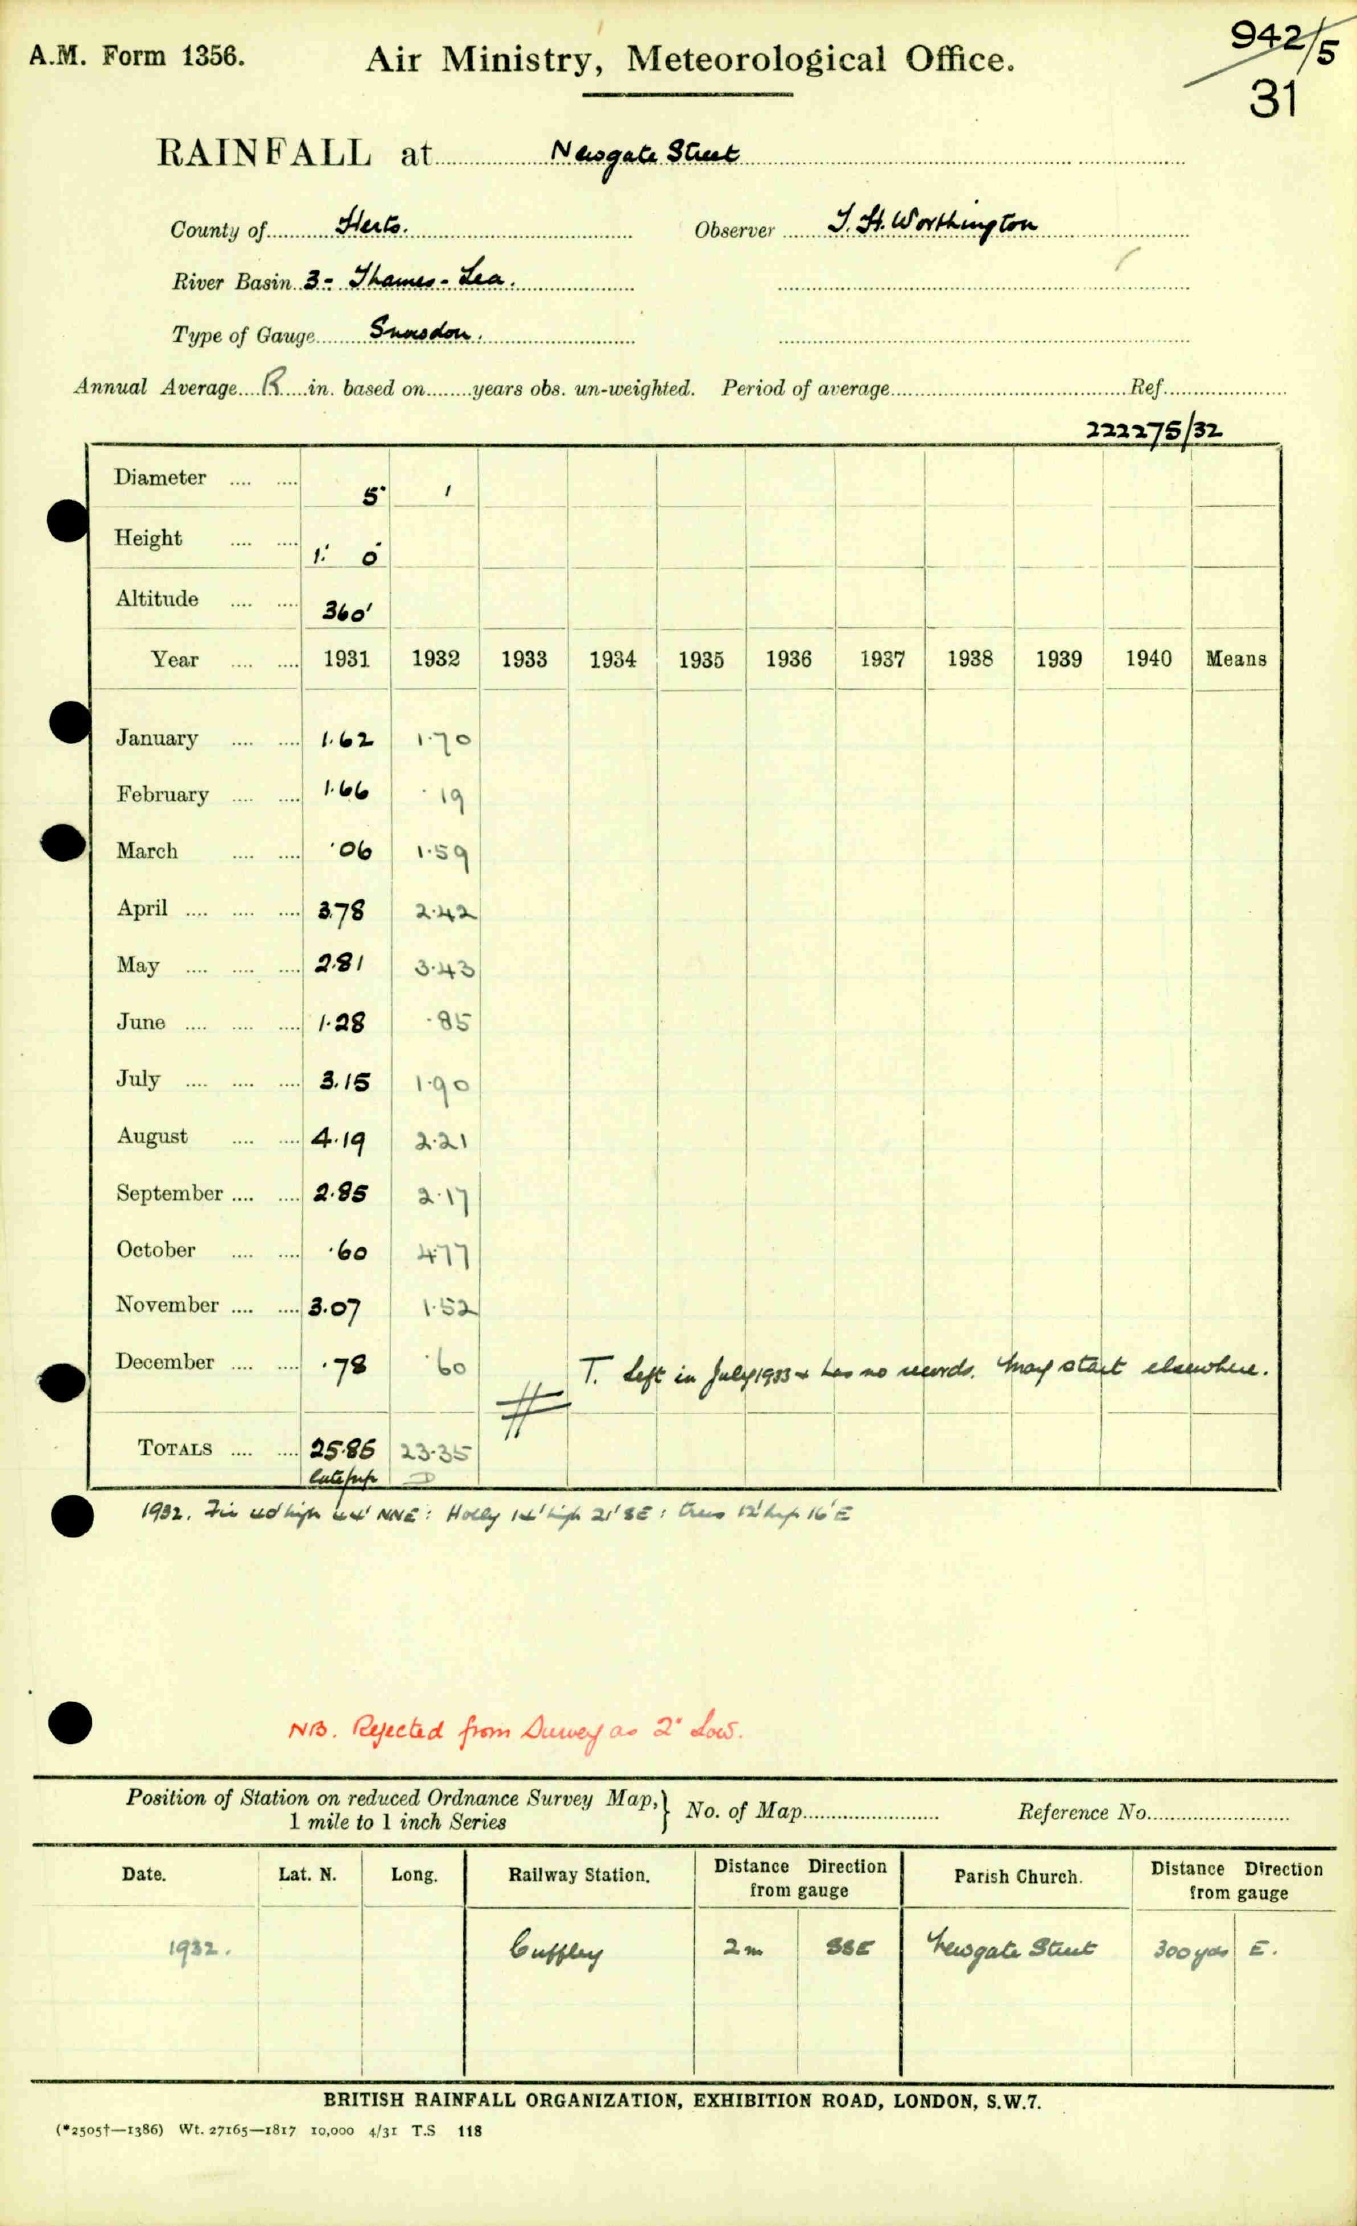 A.M. Form 1356.
Air Ministry, Meteorological Office.
942/5
31
RAINFALL at Newgate Street
County of Herts. Observer T. H. Worthington
River Basin 3 - Thames - Lea.
Type of Gauge Snowdon.
Annual Average R in. based on years obs. un-weighted. Period of average Ref.
222275/32
Diameter 5"
Height 1' 0"
Altitude 360'
Year 1931 1932 1933 1934 1935 1936 1937 1938 1939 1940 Means
January 1.62 1.70
February 1.66 .19
March .06 1.59
April 3.78 2.42
May 2.81 3.43
June 1.28 .85
July 3.15 1.90
August 4.19 2.21
September 2.85 2.17
October .60 4.77
November 3.07 1.52
December .78 .60
T. Left in July 1933 & has no records. May start elsewhere.
TOTALS 25.85 23.35
1932. Fir high NNE: Holly 14' high 21' SE: trees 12' high 16' E
NB. Rejected from Survey as 2" Low.
Position of Station on reduced Ordnance Survey Map, 1 mile to 1 inch Series } No. of Map Reference No.
Date. Lat. N. Long. Railway Station. Distance Direction from gauge Parish Church. Distance Direction from gauge
1932. Cuffley 2m SSE Newgate Street 300 yds E.
BRITISH RAINFALL ORGANIZATION, EXHIBITION ROAD, LONDON, S.W.7.
(*2505†—1386) Wt. 27165—1817 10,000 4/31 T.S 118